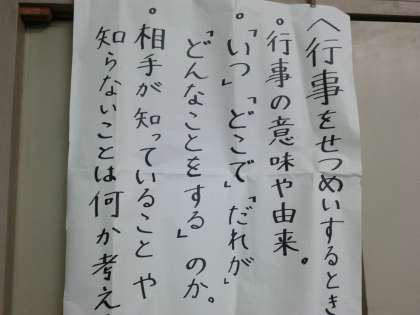 へ行事をせつめいするとき
。行事の意味や由来。
。「いつ」「どこで」「だれが」
「どんなことをする」のか。
。相手が知っていることや
知らないことは何か考え